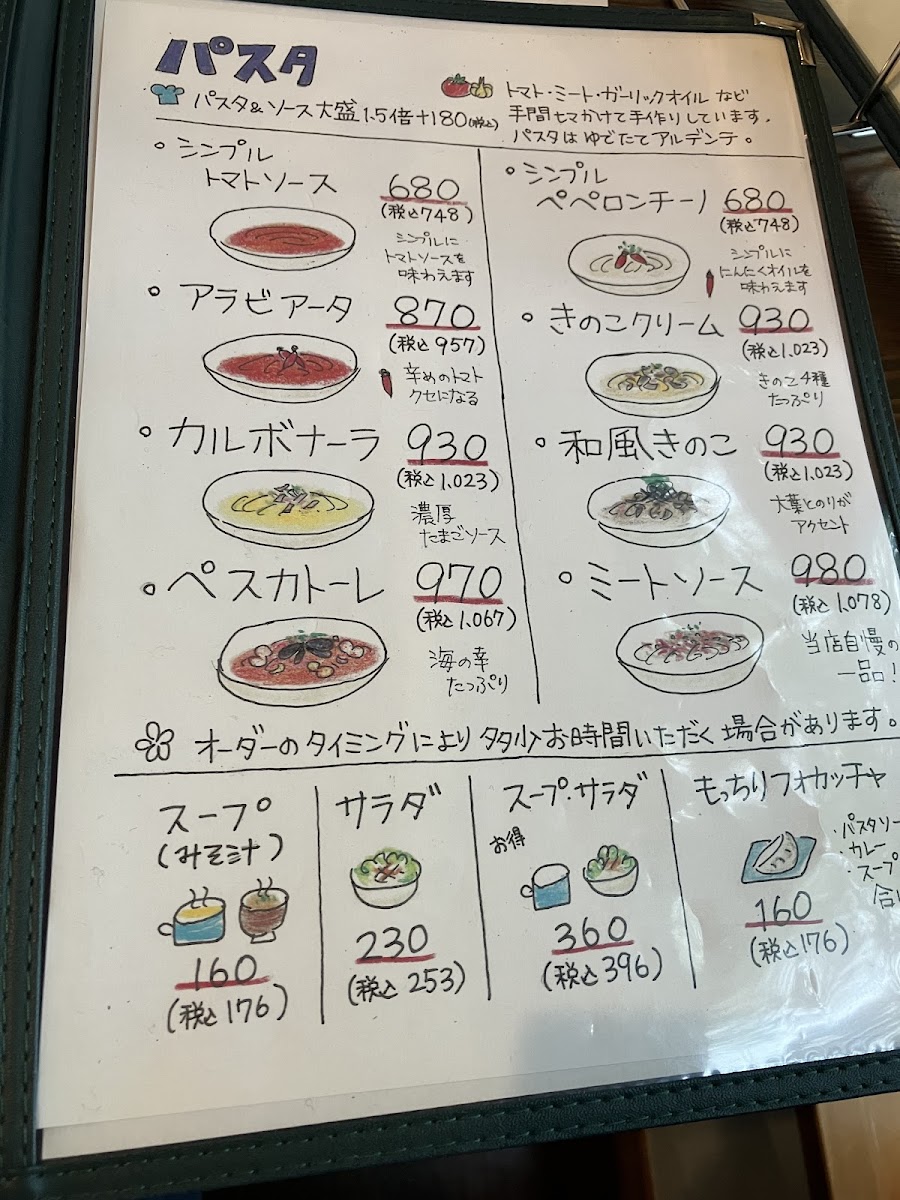 パスタ
パスタ&ソース大盛1.5倍+180(税込)
トマト・ミート・ガーリックオイルなど
手間ヒマかけて手作りしています。
パスタはゆでたてアルデンテ。
・シンプル
トマトソース 680
(税込748)
シンプルに
トマトソースを
味わえます
・アラビアータ 870
(税込957)
辛めのトマト
クセになる
・カルボナーラ 930
(税込1,023)
濃厚
たまごソース
・ペスカトーレ 970
(税込1,067)
海の幸
たっぷり
・シンプル
ペペロンチーノ 680
(税込748)
シンプルに
にんにくオイルを
味わえます
・きのこクリーム 930
(税込1,023)
きのこ4種
たっぷり
・和風きのこ 930
(税込1,023)
大葉とのりが
アクセント
・ミートソース 980
(税込1,078)
当店自慢の
一品!
オーダーのタイミングにより多少お時間いただく場合があります。
スープ
(みそ汁)
160
(税込176)
サラダ
230
(税込253)
スープ・サラダ
お得
360
(税込396)
もっちりフォカッチャ
・パスタソー
・カレー
・スープ
合
160
(税込176)